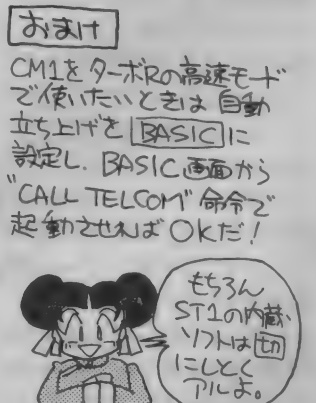 おまけ
CM1をターボRの高速モード
で使いたいときは自動
立ち上げをBASICに
設定し、BASIC画面から
"CALL TELCOM"命令で
起動させればOKだ!
もちろん
ST1の内蔵
ソフトは切
にしとく
アルよ。